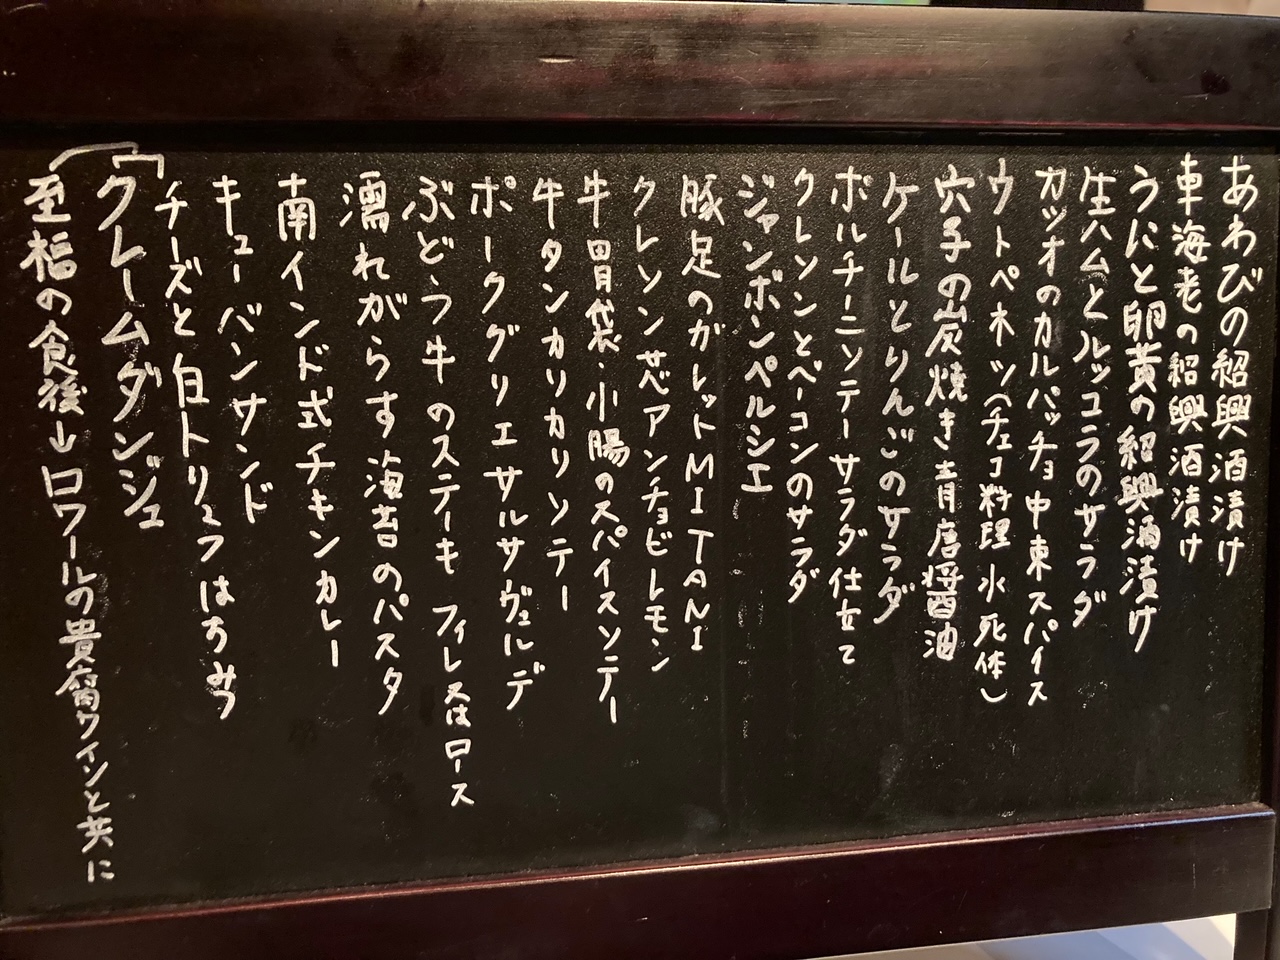 あわびの紹興酒漬け
車海老の紹興酒漬け
うにと卵黄の紹興酒漬け
生ハムとルッコラのサラダ
カツオのカルパッチョ中東スパイス
ウトペネツ(チェコ料理 水死体)
穴子の炭焼き青唐醤油
ケールとりんごのサラダ
ポルチーニソテーサラダ仕立て
クレソンとベーコンのサラダ
ジャンボンペルシエ
豚足のガレットMITANI
クレソンザベアンチョビレモン
牛胃袋・小腸のスパイスソテー
牛タンカリカリソテー
ポークグリエサルサヴェルデ
ぶどう牛のステーキ フィレ又はロース
濡れがらす海苔のパスタ
南インド式チキンカレー
キューバンサンド
チーズと白トリュフはちみつ
クレームダンジュ
至福の食後 ロワールの貴腐ワインと共に